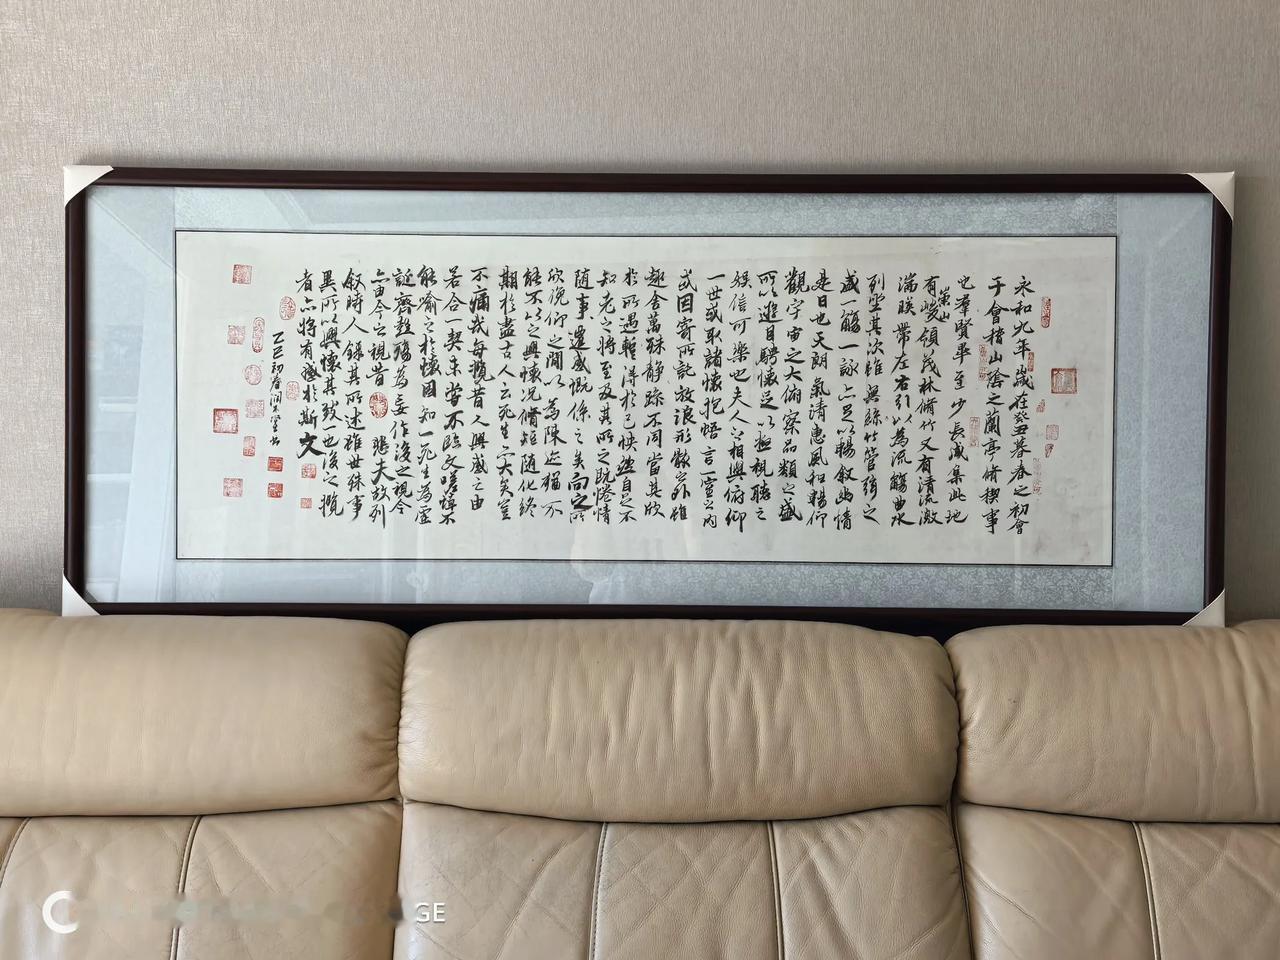 永和九年歲在癸丑暮春之初會
于會稽山陰之蘭亭脩稧事
也羣賢畢至少長咸集此地
有崇山峻領茂林脩竹又有清流激
湍暎帶左右引以為流觴曲水
列坐其次雖無絲竹管弦之
盛一觴一詠亦足以暢敘幽情
是日也天朗氣清惠風和暢仰
觀宇宙之大俯察品類之盛
所以遊目騁懷足以極視聽之
娛信可樂也夫人之相與俯仰
一世或取諸懷抱悟言一室之內
或因寄所託放浪形骸之外雖
趣舍萬殊靜躁不同當其欣
於所遇暫得於己快然自足不
知老之將至及其所之既惓情
隨事遷感慨係之矣向之所
欣俛仰之閒以為陳迹猶不
能不以之興懷況脩短隨化終
期於盡古人云死生亦大矣豈
不痛哉每攬昔人興感之由
若合一契未嘗不臨文嗟悼不
能喻之於懷固知一死生為虛
誕齊彭殤為妄作後之視今
亦由今之視昔悲夫故列
敘時人錄其所述雖世殊事
異所以興懷其致一也後之攬
者亦將有感於斯文
乙巳初春
GE